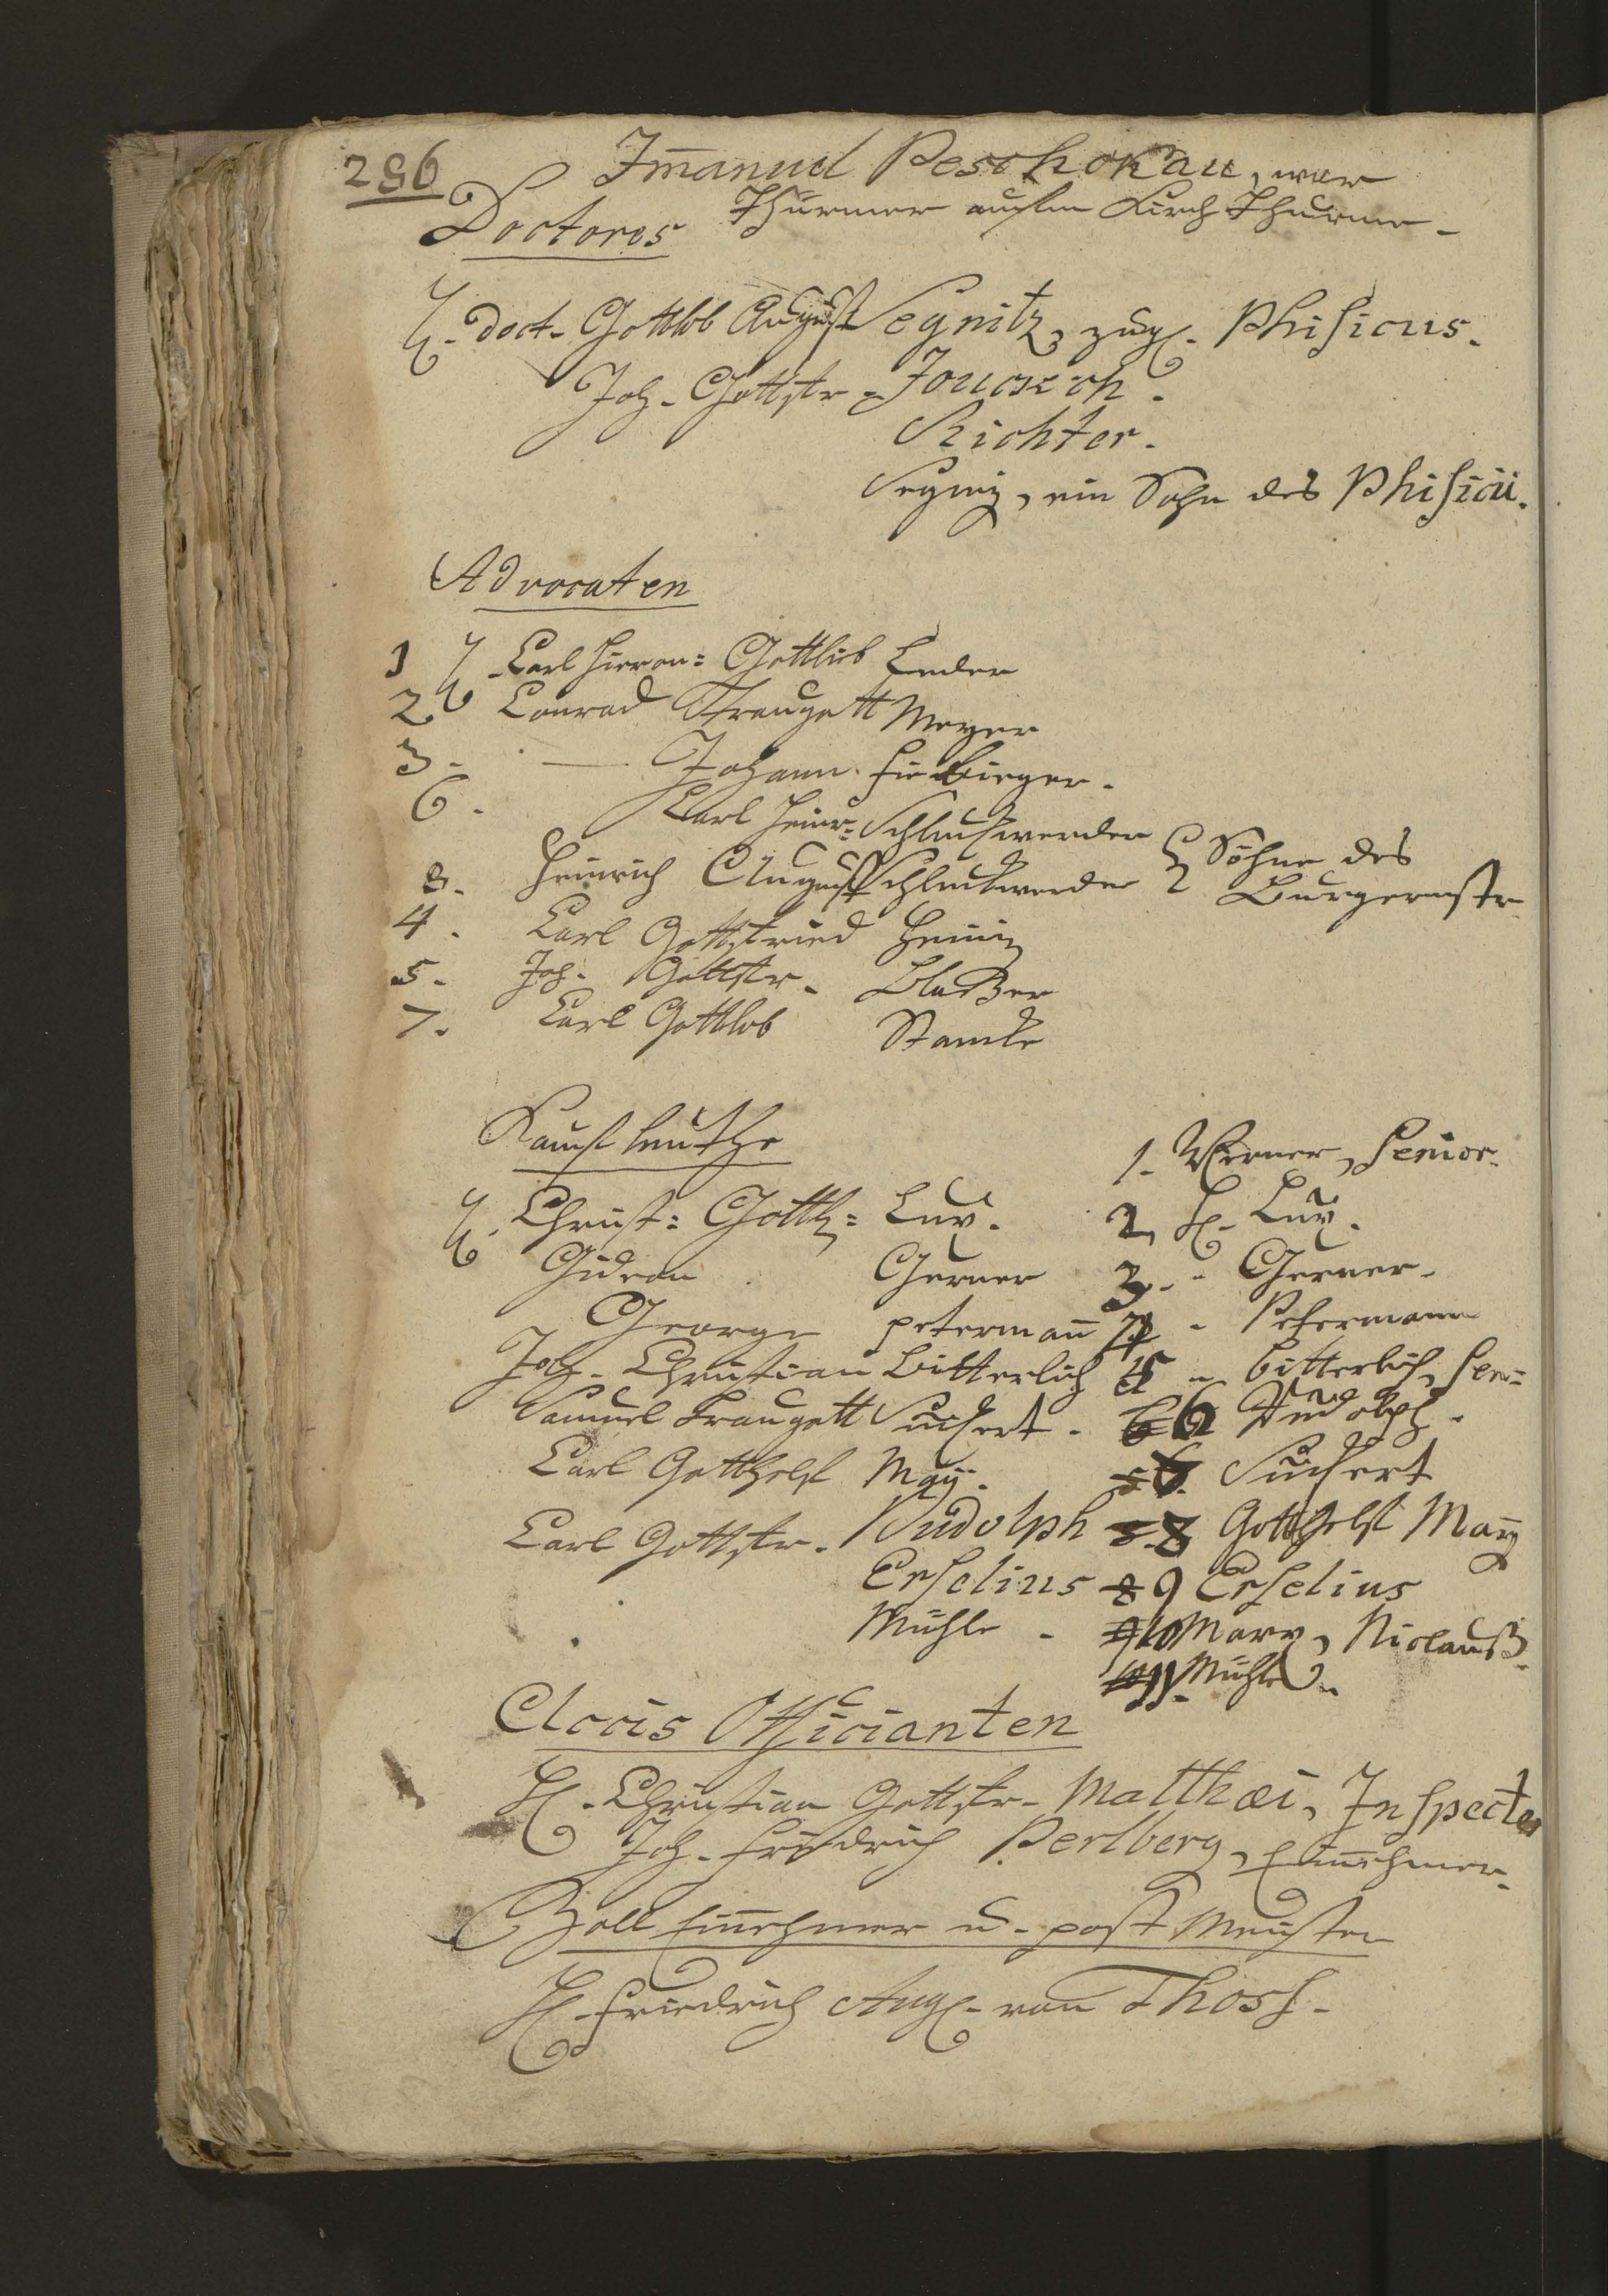 286
Im̄anuel Peschokau, war
Thürmer aufm Kirch Thurme.
Doctores
H. Doct. Gottlob August Segnitz, zugl. Phisicus.
Joh. Gottfr. Jouckch.
Richter.
Segniz, ein Sohn des Phisicii.
Advocaten
1 H. Carl Hieron: Gottlieb Leder
2 Conrad Traugott Meyer
3. — Johann Fiebieger.
6. Carl Heinr: Schluckwerder
8. Heinrich August Schluckwerder } Söhne des Burgermstr
4. Carl Gottfried
5. Joh. Gottfr. Blaßer
7. Carl Gottlob Stamke
Kauf leuthe
H. Christ: Gotth: Lux.
Gideon Gerner
George Peterman̄
Joh. Christian Bitterlich
Samuel Traugott Suchert.
Carl Gotthelf May.
Carl Gottfr. Rudolph
Erselius
Mühle.
1. Werner, Senior.
2. H. Lux.
3. - Gerner.
4 - Petermann
5 - Bitterlich, Sen:
6 Rudolph.
Suchert
8 Gotthelf May
9 Erselius
10 Marx, Niclauß.
11. Mühle.
Accis Officianten
H. Christian Gottfr. Matthæi, Inspector
Joh. Friedrich Perlberg, Ein̄ehmer.
Zoll Ein̄ehmer u. post Meister
H. Friedrich Aug. von Thoss.